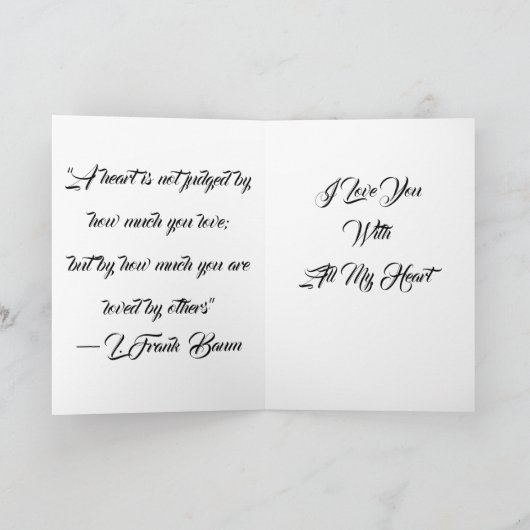 "A heart is not judged by
how much you love;
but by how much you are
loved by others"
— L. Frank Baum
I Love You
With
All My Heart